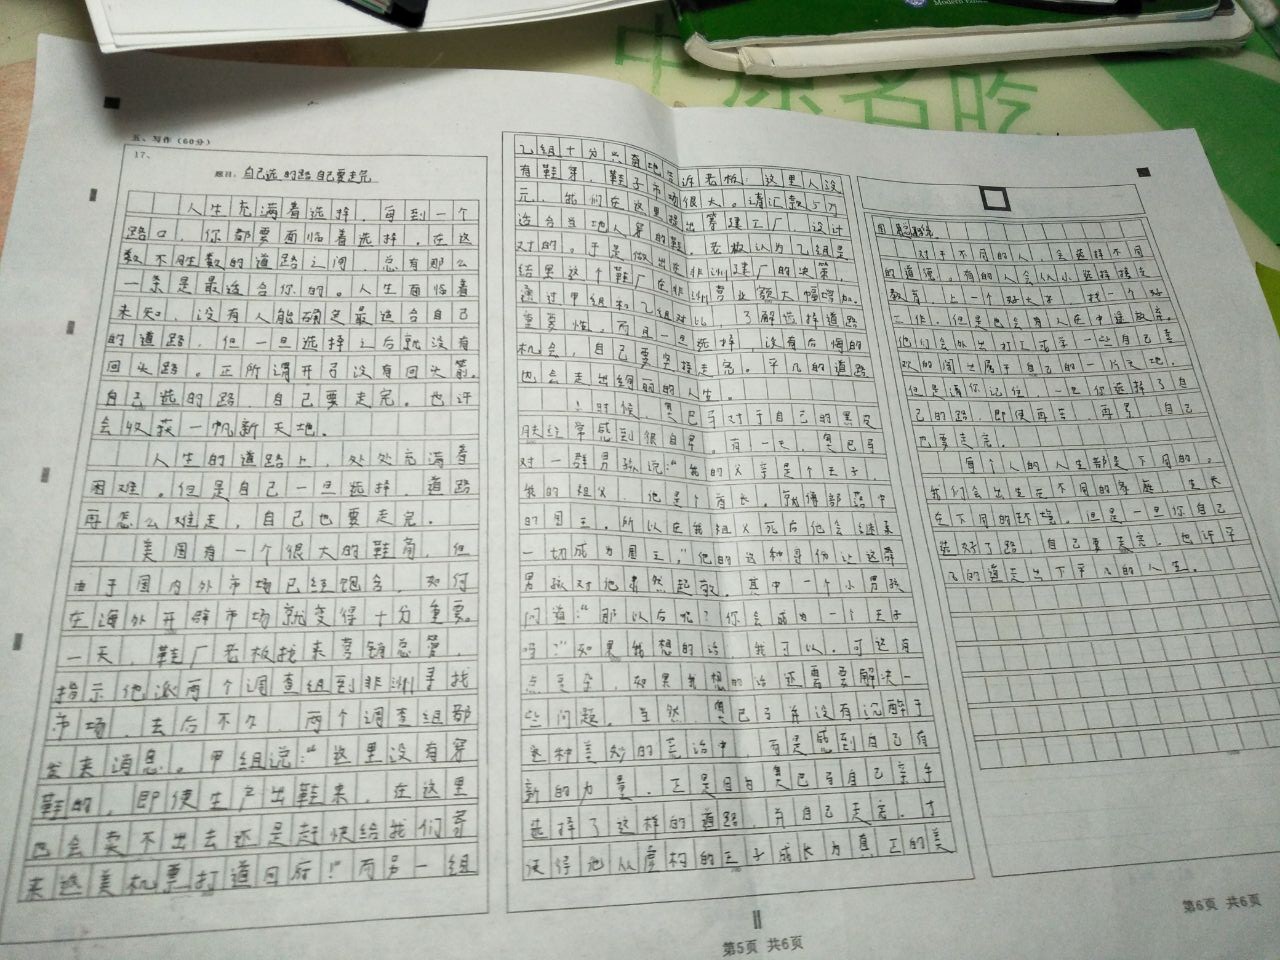 中原名吃
五、写作（60分）
17、
题目：自己选的路 自己要走完
人生充满着选择，每到一个
路口，你都要面临着选择，在这
数不胜数的道路之间，总有那么
一条是最适合你的。人生面临着
未知，没有人能确定最适合自己
的道路，但一旦选择之后就没有
回头路。正所谓开弓没有回头箭。
自己选的路 自己要走完。也许
会收获一帆新天地。
人生的道路上，处处充满着
困难。但是自己一旦选择，道路
再怎么难走，自己也要走完。
美国有一个很大的鞋商，但
由于国内外市场已经饱含，如何
在海外开辟市场就变得十分重要。
一天，鞋厂老板找来营销总管，
指示他派两个调查组到非洲寻找
市场，去后不久，两个调查组都
发来消息。甲组说：“这里没有穿
鞋的，即使生产出鞋来，在这里
也会卖不出去还是赶快给我们寄
来返美机票打道回府！”而另一组
乙组十分兴奋地告诉老板：这里人没
有鞋穿，鞋子市场很大。请汇款5万
元，我们在这里提出筹建工厂，设计
适合当地人穿的鞋。老板认为乙组是
对的。于是做出在非洲建厂的决策，
结果这个鞋厂在非洲营业额大幅增加。
通过甲组和乙组对比，了解选择道路
重要性，而且一旦选择，没有后悔的
机会，自己要坚持走完。平凡的道路
也会走出绚丽的人生。
小时候，奥巴马对于自己的黑皮
肤经常感到很自卑。有一天，奥巴马
对一群男孩说：“我的父亲是个王子，
我的祖父，他是个酋长。就像部落中
的国王。所以在我祖父死后他会继承
一切成为国王，”他的这种身份让这群
男孩对他肃然起敬。其中一个小男孩
问道：“那以后呢？你会成为一个王子
吗？”如果我想的话，我可以，可这有
点复杂，如果我想的话还需要解决一
些问题。当然，奥巴马并没有沉醉于
这种美妙的谎话中，而是感到自己有
新的力量。正是因为奥巴马自己亲手
选择了这样的道路，并自己走完，才
使得他从虚构的王子成长为真正的美
国总统。
对于不同的人，会选择不同
的道路。有的人会从小选择接受
教育，上一个好大学，找一个好
工作，但是也会有人在中途放弃，
他们会外出打工或学一些自己喜
欢的闯出属于自己的一片天地，
但是请你记住，一旦你选择了自
己的路，即使再苦，再累，自己
也要走完。
每个人的人生都是不同的，
我们会出生在不同的家庭，生长
在不同的环境，但是一旦你自己
选好了路，自己要走完，也许平
凡的道走出不平凡的人生。
第5页 共6页
第6页 共6页